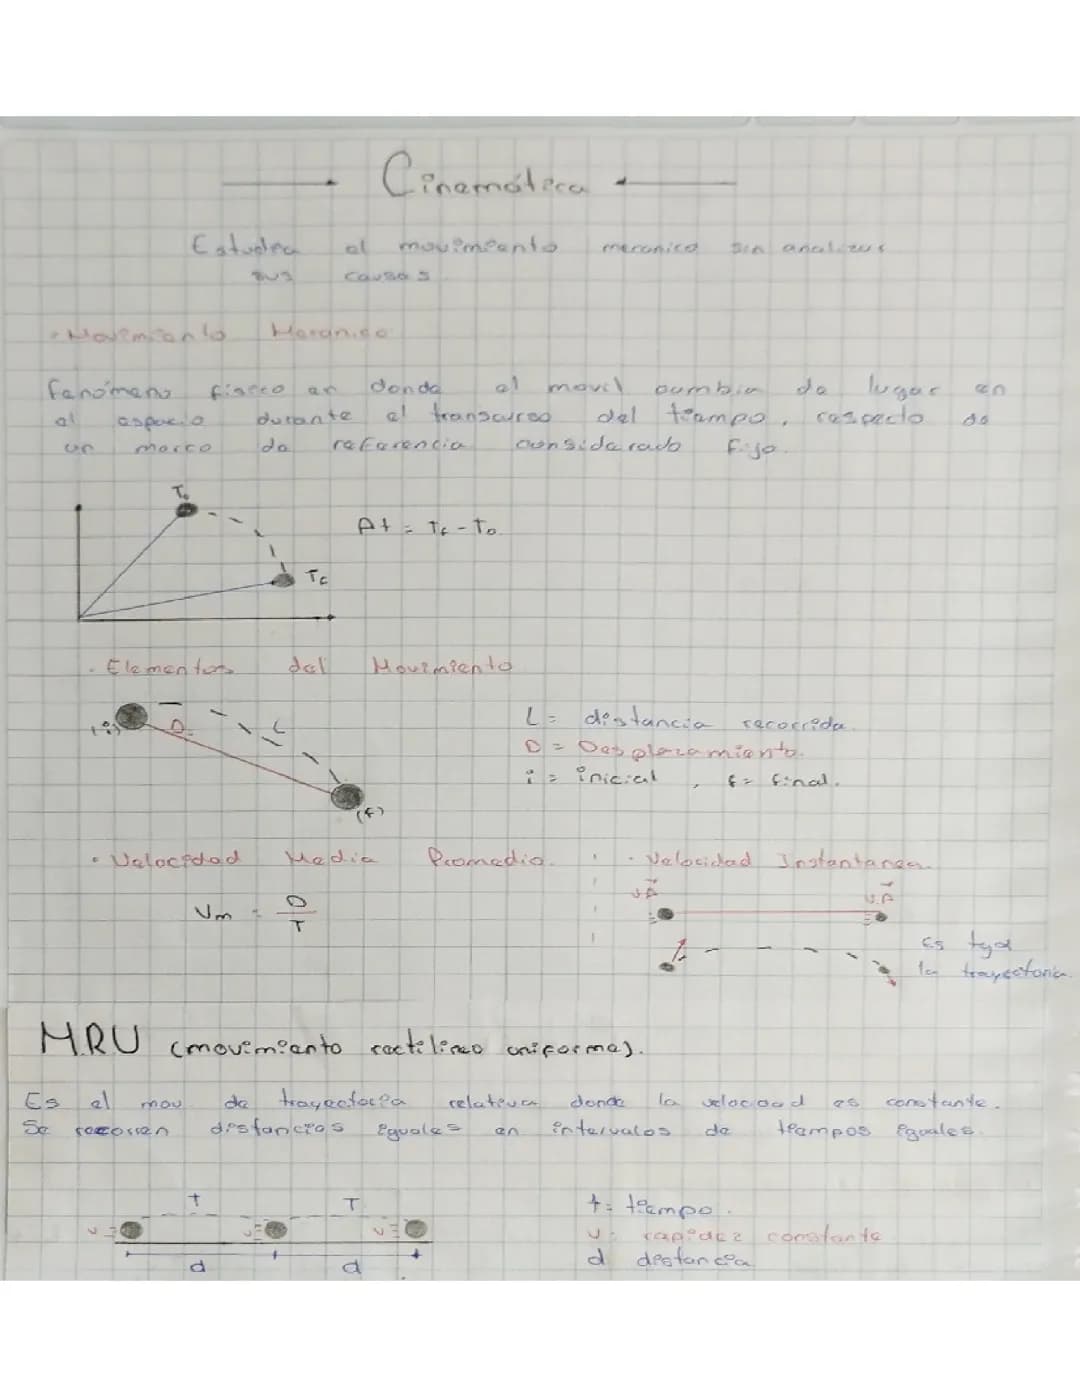 Cinemática
Estudia el movimiento mecanico sin analizar
sus causas
• Movimiento Mecanico
fenómeno fisico en donde el movil cambia de lugar en
el espacio durante el transcurso del tiempo, respecto de
un marco de referencia considerado fijo.
T₀
Δt = Tf - T₀
Tf
• Elementos del Movimiento
(i) D L
L = distancia recorrida.
D = Desplazamiento.
i = inicial, f = final.
(f)
• Velocidad Media Promedio.
• Velocidad Instantanea
Vm = D/T
Es tg a
la trayectoria.
M.R.U (movimiento rectilineo uniforme).
Es el mov de trayectoria relativa donde la velocidad es constante.
Se recorren distancias iguales en intervalos de tiempos iguales.
t T
t = tiempo.
v v v
v = rapidez constante
d d
d distancia